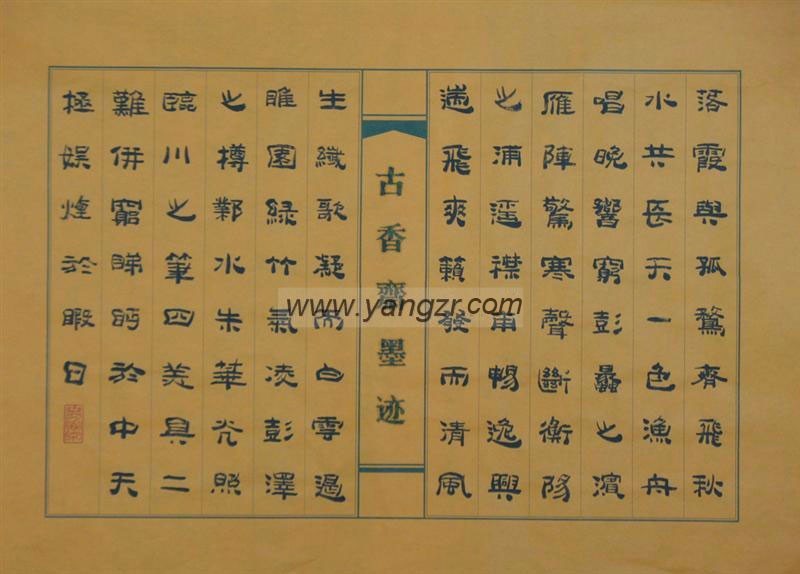 落霞與孤鶩齊飛秋
水共長天一色漁舟
唱晚響窮彭蠡之濱
雁陣驚寒聲斷衡陽
之浦遥襟甫暢逸興
遄飛爽籟發而清風
古香齋墨迹
生纖歌凝而白雲遏
睢園綠竹氣凌彭澤
之樽鄴水朱華光照
臨川之筆四美具二
難併窮睇眄於中天
極娛遊於暇日
www.yangzr.com